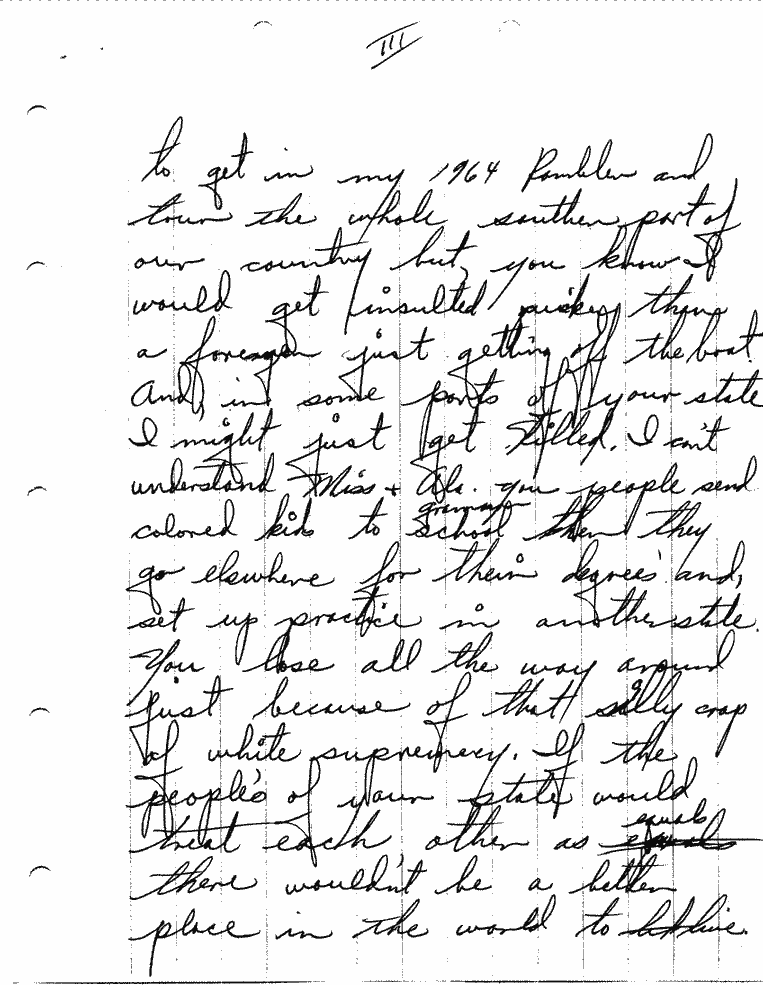 III
to get in my 1964 Rambler and
tour the whole southern part of
our country but, you know I
would get insulted quicker than
a foreigen just getting off the boat.
And, in some parts of your state
I might just get killed. I can't
understand Miss + Ala. you people send
grammar
colored kids to school then they
go elsewhere for their degrees and,
set up practice in another state.
You lose all the way around
just because of that silly crap
of white supremecy. If the
people's of your state would
equals
treat each other as equals
there wouldn't be a better
place in the world to live.